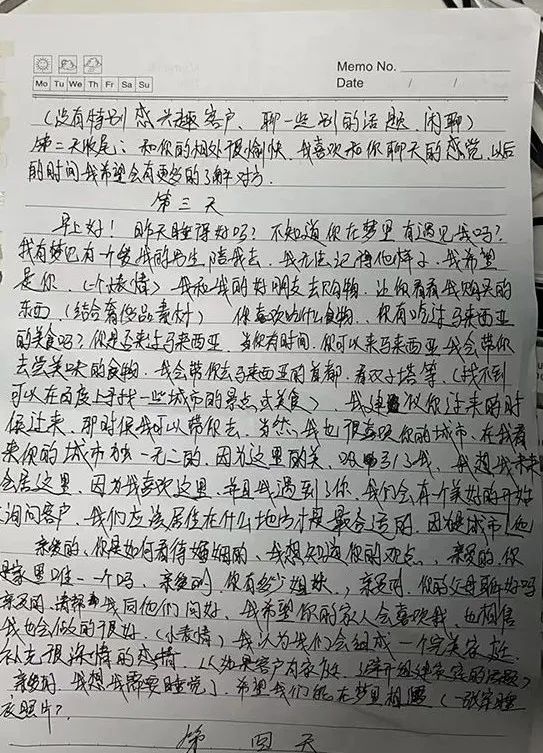 Memo No.
Mo Tu We Th Fr Sa Su
Date / /
(没有特别感兴趣客户、聊一些别的话题、闲聊)
第二天收尾：和你的相处很愉快、我喜欢和你聊天的感觉、以后
的时间我希望会有更多的了解对方.
第三天
早上好！昨天睡得好吗？不知道你在梦里有遇见我吗？
我有梦见有一个给我的男生陪我去、我无法记得他样子、我希望
是你、(一个表情) 我和我的好朋友去购物、让你看看我购买的
东西 (结合奢侈品素材) 你喜欢吃什么食物、你有吃过马来西亚
的美食吗？你是否来过马来西亚、当你有时间、你可以来马来西亚我会带你
去尝美味的食物、我会带你去马来西亚的首都、看双子塔等、(找不到
可以在百度上寻找一些城市的景点或美食)、我建议你过来的时
候过来、那时候我可以带你去、当然、我也很喜欢你的城市、在我看
来你的城市独一无二的、因为这里的美、吸引了我、我想我未来
会居这里、因为我喜欢这里、并且我遇到了你、我们会有一个美好的开始
询问客户、我们应该居住在什么地方才是最合适的、因是城市
亲爱的、你是如何看待婚姻的、我想知道你的观点、亲爱的、你
是家里唯一一个吗、亲爱的、你有些少姐妹、亲爱的、你的父母都好吗
亲爱的、请帮我同他们问好、我希望你的家人会喜欢我、也相信
我也会做的很好、(小表情) 我认为我们会组成一个完美家庭
补充很深情的感情、(如果客户有家庭、避开组建家庭的话题)
亲爱的、我想我需要睡觉了、希望我们能在梦里相遇 (一张穿睡
衣照片？
第四天